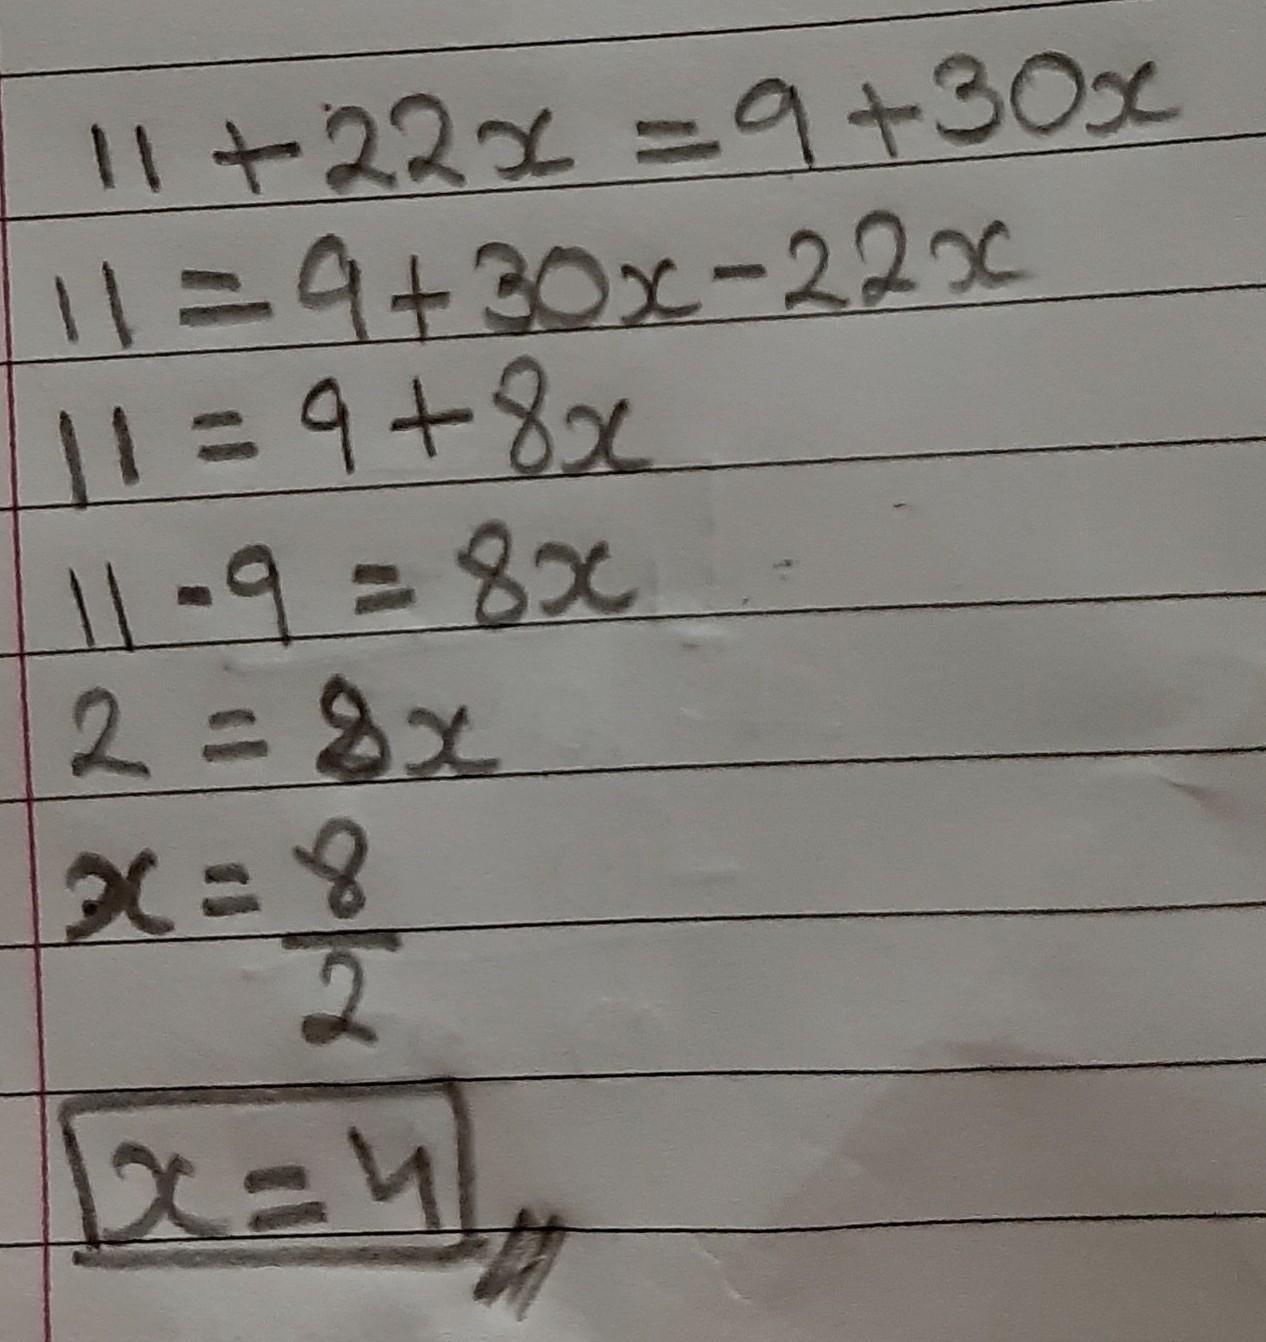 11 + 22x = 9 + 30x
11 = 9 + 30x - 22x
11 = 9 + 8x
11 - 9 = 8x
2 = 8x
x = 8/2
x = 4